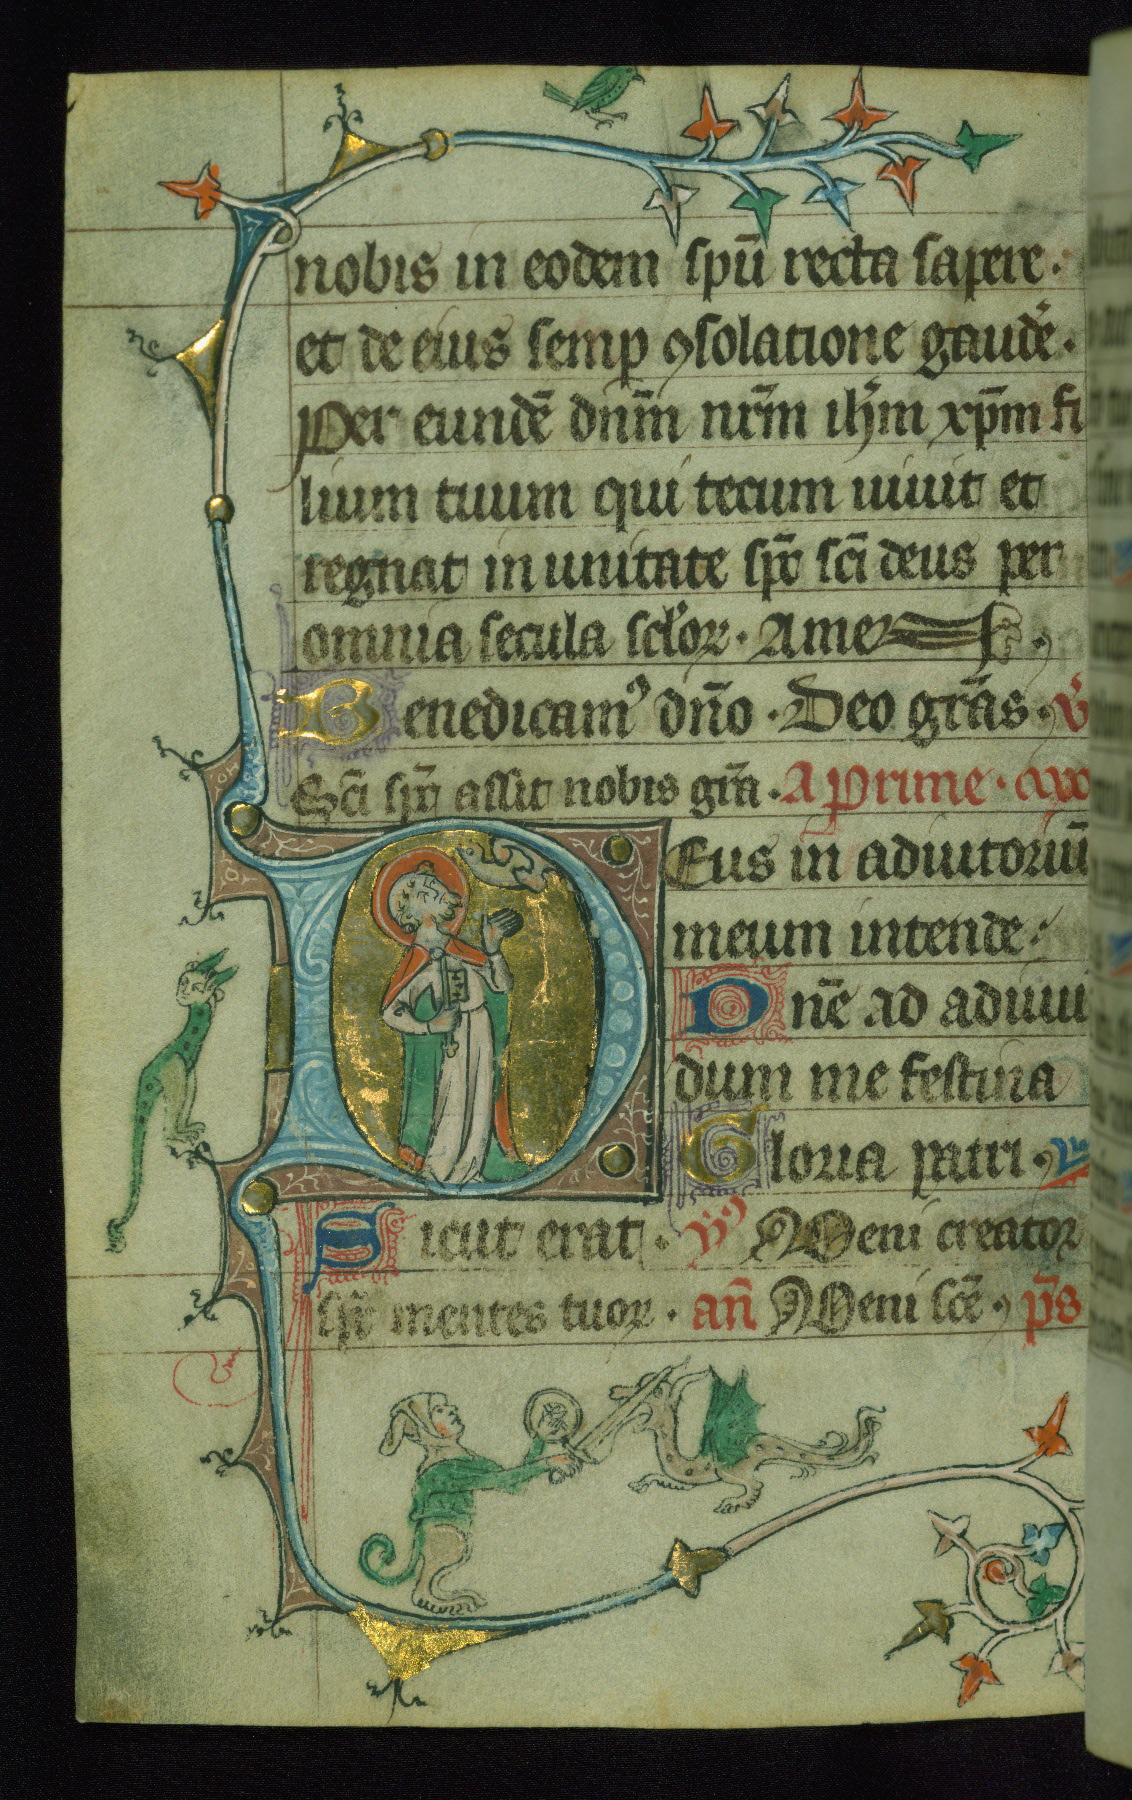 nobis in eodem spū recta sapere.
et de eius semp ꝯsolatione gaudē.
Per eundē dn̄m nr̄m ih̄m xp̄m fi
lium tuum qui tecum uiuit et
regnat in unitate sp̄c sc̄i deus per
omnia secula sc̄loꝝ. Amen.
Benedicamꝰ dn̄o. Deo grās. v̄
Sc̄i sp̄c assit nobis grā. A Prime.
Deus in adiutoriū
meum intende.
Dn̄e ad adiuu
dum me festina
Gloria patri.
Sicut erat. Veni creator
sp̄c mentes tuoꝝ. an̄ Veni sc̄e. p̄s